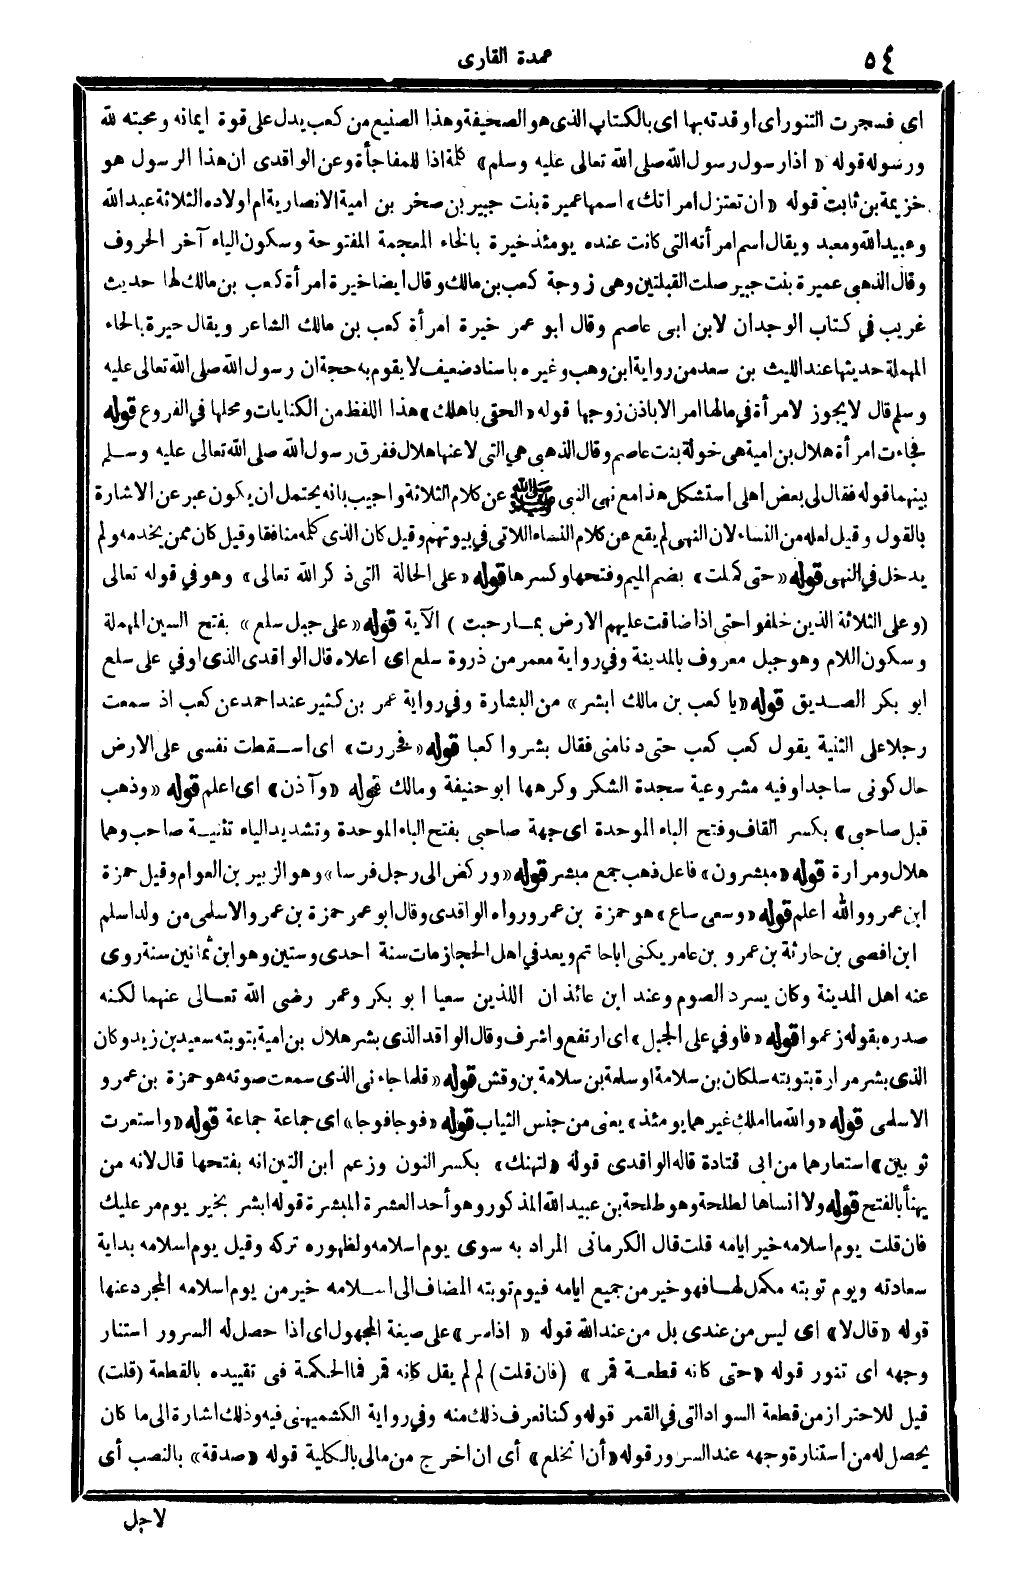 ٥٤
عمدة القارى
اى فسجرت التنور اى اوقدته بها اى بالكتاب الذى هو الصحيفة وهذا الصنيع من كعب يدل على قوة ايمانه ومحبته لله
ورسوله قوله « اذا رسول رسول الله صلى الله تعالى عليه وسلم» كلمة اذا للمفاجأة وعن الواقدى ان هذا الرسول هو
خزيمة بن ثابت قوله «ان تعتزل امرأتك» اسمها عميرة بنت جبير بن صخر بن امية الانصارية ام اولاده الثلاثة عبد الله
وعبيد الله ومعبد ويقال اسم امرأته التى كانت عنده يومئذ خيرة بالخاء المعجمة المفتوحة وسكون الياء آخر الحروف
وقال الذهبى عميرة بنت جبير صلت القبلتين وهى زوجة كعب بن مالك وقال ايضا خيرة امرأة كعب بن مالك لها حديث
غريب في كتاب الوحدان لابن ابى عاصم وقال ابو عمر خيرة امرأة كعب بن مالك الشاعر ويقال حيرة بالحاء
المهملة حديثها عند الليث بن سعد من رواية ابن وهب وغيره باسناد ضعيف لا يقوم به حجة ان رسول الله صلى الله تعالى عليه
وسلم قال لا يجوز لامرأة في مالها امر الا باذن زوجها قوله «الحقى باهلك» هذا اللفظ من الكنايات ومحلها في الفروع قوله
فجاءت امرأة هلال بن امية هى خولة بنت عاصم وقال الذهبى هى التى لاعنها هلال ففرق رسول الله صلى الله تعالى عليه وسلم
بينهما قوله فقال لى بعض اهلى استشكل هذا مع نهى النبى ﷺ عن كلام الثلاثة واجيب بانه يحتمل ان يكون عبر عن الاشارة
بالقول وقيل لعله من النساء لان النهى لم يقع عن كلام النساء اللاتى في بيوتهم وقيل كان الذى كلمه منافقا وقيل كان ممن يخدمه ولم
يدخل في النهى قوله «حتى كملت» بضم الميم وفتحها وكسرها قوله «على الحالة التى ذكر الله تعالى» وهو في قوله تعالى
(وعلى الثلاثة الذين خلفوا حتى اذا ضاقت عليهم الارض بمـا رحبت ) الآية قوله «على جبل سلع» بفتح السين المهملة
وسكون اللام وهو جبل معروف بالمدينة وفي رواية معمر من ذروة سلع اى اعلاه قال الواقدى الذى اوفي على سلع
ابو بكر الصـديق قوله «يا كعب بن مالك ابشر» من البشارة وفي رواية عمر بن كثير عند احمد عن كعب اذ سمعت
رجلا على الثنية يقول كعب كعب حتى دنا منى فقال بشروا كعبا قوله «فخررت» اى اسـقطت نفسى على الارض
حال كونى ساجدا وفيه مشروعية سجدة الشكر وكرهها ابو حنيفة ومالك قوله «وآذن» اى اعلم قوله «وذهب
قبل صاحبى» بكسر القاف وفتح الباء الموحدة اى جهة صاحبى بفتح الباء الموحدة وتشديد الياء تثنيـة صاحب وهما
هلال ومرارة قوله «مبشرون» فاعل ذهب جمع مبشر قوله «وركض الى رجل فرسا» وهو الزبير بن العوام وقيل حمزة
ابن عمرو والله اعلم قوله «وسعى ساع» هو حمزة بن عمرو رواه الواقدى وقال ابو عمر حمزة بن عمرو الاسلمى من ولد اسلم
ابن افصى بن حارثة بن عمرو بن عامر يكنى اباحاتم ويعد في اهل الحجاز مات سنة احدى وستين وهو ابن ثمانين سنة روى
عنه اهل المدينة وكان يسرد الصوم وعند ابن عائذ ان اللذين سعيا ابو بكر وعمر رضى الله تعـالى عنهما لكنه
صدره بقوله زعموا قوله «فاوفي على الجبل» اى ارتفع واشرف وقال الواقد الذى بشر هلال بن امية بتوبته سعيد بن زيد وكان
الذى بشر مرارة بتوبته سلكان بن سلامة او سلمة بن سلامة بن وقش قوله «فلما جاءنى الذى سمعت صوته هو حمزة بن عمرو
الاسلمى قوله «والله ما املك غيرهما يومئذ» يعنى من جنس الثياب قوله «فوجا فوجا» اى جماعة جماعة قوله «واستعرت
ثوبين» استعارهما من ابى قتادة قاله الواقدى قوله «لتهنك» بكسر النون وزعم ابن التين انه بفتحها قال لانه من
يهنأ بالفتح قوله ولا انساها لطلحة وهو طلحة بن عبيد الله المذكور وهو أحد العشرة المبشرة قوله ابشر بخير يوم مر عليك
فان قلت يوم اسلامه خير ايامه قلت قال الكرمانى المراد به سوى يوم اسلامه ولظهوره تركه وقيل يوم اسلامه بداية
سعادته ويوم توبته مكمل لهـا فهو خير من جميع ايامه فيوم توبته المضاف الى اسـلامه خير من يوم اسلامه المجرد عنها
قوله «قال لا» اى ليس من عندى بل من عند الله قوله « اذا سر» على صيغة المجهول اى اذا حصل له السرور استنار
وجهه اى تنور قوله «حتى كانه قطعـة قمر» (فان قلت) لم لم يقل كانه قمر فما الحكمة فى تقييده بالقطعة (قلت)
قيل للاحتراز من قطعة السواد التى في القمر قوله وكنا نعرف ذلك منه وفي رواية الكشميهنى فيه وذلك اشارة الى ما كان
يحصل له من استنارة وجهه عند السرور قوله «أن انخلع» أى ان اخرج من مالى بالكلية قوله «صدقة» بالنصب أى
لاجل